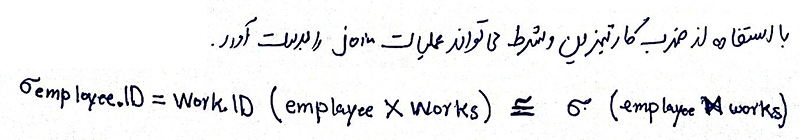 با استفاده از ضرب کارتیزین و شرط می تواند عملیات join را بدست آورد.
σ employee.ID = Work.ID (employee X Works) ≅ σ (employee ⋈ works)